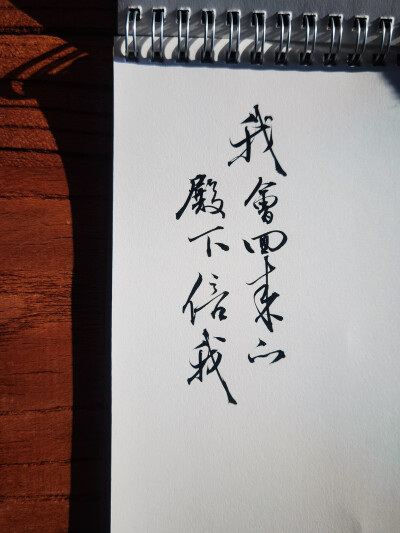 我會回來的
殿下信我